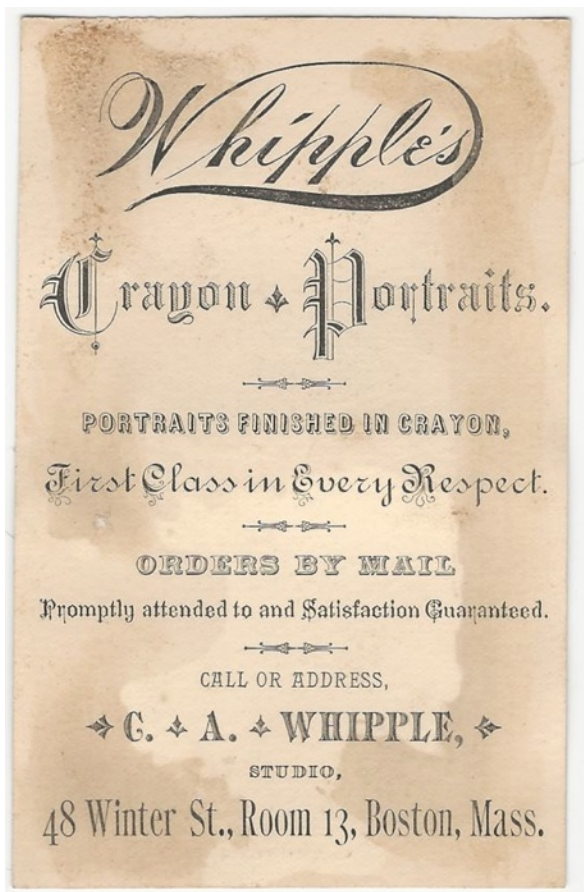 Whipple's
Crayon Portraits.
PORTRAITS FINISHED IN CRAYON,
First Class in Every Respect.
ORDERS BY MAIL
Promptly attended to and Satisfaction Guaranteed.
CALL OR ADDRESS,
C. A. WHIPPLE,
STUDIO,
48 Winter St., Room 13, Boston, Mass.